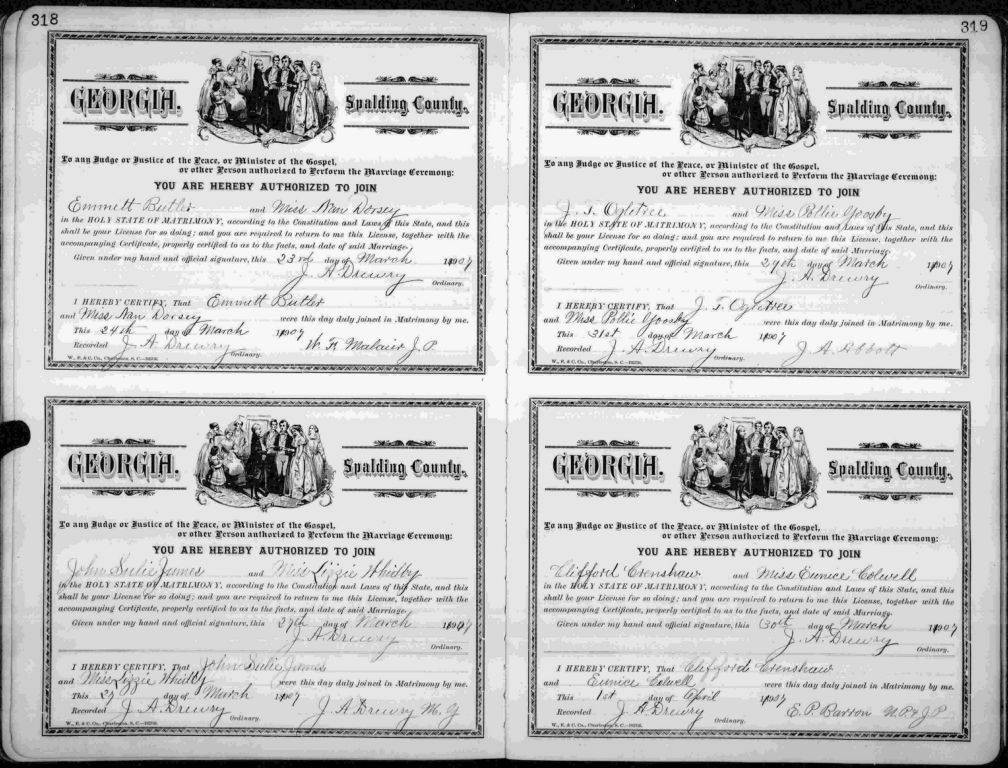 318
GEORGIA. Spalding County.
To any Judge or Justice of the Peace, or Minister of the Gospel,
or other Person authorized to Perform the Marriage Ceremony:
YOU ARE HEREBY AUTHORIZED TO JOIN
Emmett Butler and Miss Nan Dorsey
in the HOLY STATE OF MATRIMONY, according to the Constitution and Laws of this State, and this
shall be your License for so doing; and you are required to return to me this License, together with the
accompanying Certificate, properly certified to as to the facts, and date of said Marriage.
Given under my hand and official signature, this 23rd day of March 1907
J. A. Drewry
Ordinary.
I HEREBY CERTIFY, That Emmett Butler
and Miss Nan Dorsey were this day duly joined in Matrimony by me.
This 24th day of March 1907
Recorded J. A. Drewry W. H. J. P.
Ordinary.
W., E. & C. Co., Charleston, S. C.
GEORGIA. Spalding County.
To any Judge or Justice of the Peace, or Minister of the Gospel,
or other Person authorized to Perform the Marriage Ceremony:
YOU ARE HEREBY AUTHORIZED TO JOIN
John James and Miss Lizzie Whitby
in the HOLY STATE OF MATRIMONY, according to the Constitution and Laws of this State, and this
shall be your License for so doing; and you are required to return to me this License, together with the
accompanying Certificate, properly certified to as to the facts, and date of said Marriage.
Given under my hand and official signature, this 27th day of March 1907
J. A. Drewry
Ordinary.
I HEREBY CERTIFY, That John James
and Miss Lizzie were this day duly joined in Matrimony by me.
This day of March 1907
Recorded J. A. Drewry J. A. Drewry M. G
Ordinary.
W., E. & C. Co., Charleston, S. C.
319
GEORGIA. Spalding County.
To any Judge or Justice of the Peace, or Minister of the Gospel,
or other Person authorized to Perform the Marriage Ceremony:
YOU ARE HEREBY AUTHORIZED TO JOIN
J. T. Ogletree and Miss Pollie Goosby
in the HOLY STATE OF MATRIMONY, according to the Constitution and Laws of this State, and this
shall be your License for so doing; and you are required to return to me this License, together with the
accompanying Certificate, properly certified to as to the facts, and date of said Marriage.
Given under my hand and official signature, this 29th day of March 1907
J. A. Drewry
Ordinary.
I HEREBY CERTIFY, That J. T. Ogletree
and Miss Pollie Goosby were this day duly joined in Matrimony by me.
This 31st day of March 1907
Recorded J. A. Drewry J. A. Abbott
Ordinary.
W., E. & C. Co., Charleston, S. C.
GEORGIA. Spalding County.
To any Judge or Justice of the Peace, or Minister of the Gospel,
or other Person authorized to Perform the Marriage Ceremony:
YOU ARE HEREBY AUTHORIZED TO JOIN
Clifford Crenshaw and Miss Eunice Colwell
in the HOLY STATE OF MATRIMONY, according to the Constitution and Laws of this State, and this
shall be your License for so doing; and you are required to return to me this License, together with the
accompanying Certificate, properly certified to as to the facts, and date of said Marriage.
Given under my hand and official signature, this 30th day of March 1907
J. A. Drewry
Ordinary.
I HEREBY CERTIFY, That Clifford Crenshaw
and Eunice Colwell were this day duly joined in Matrimony by me.
This 1st day of April 1907
Recorded J. A. Drewry E. P. Barron N. P. & J. P.
Ordinary.
W., E. & C. Co., Charleston, S. C.